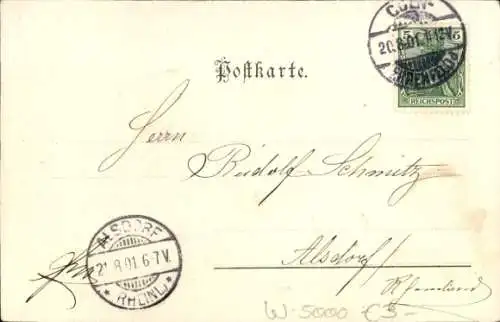 CÖLN-
20.8.01. 11-12V.
EHRENFELD
5 5
REICHSPOST
Postkarte.
Herrn
Rudolf Schmitz
ALSDORF
21.8.01. 6-7V.
* (RHEINL.) *
Alsdorf
Rheinland
W-5000 €3-